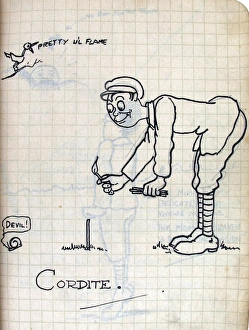 PRETTY LI'L FLAME
DEVIL!
CORDITE.